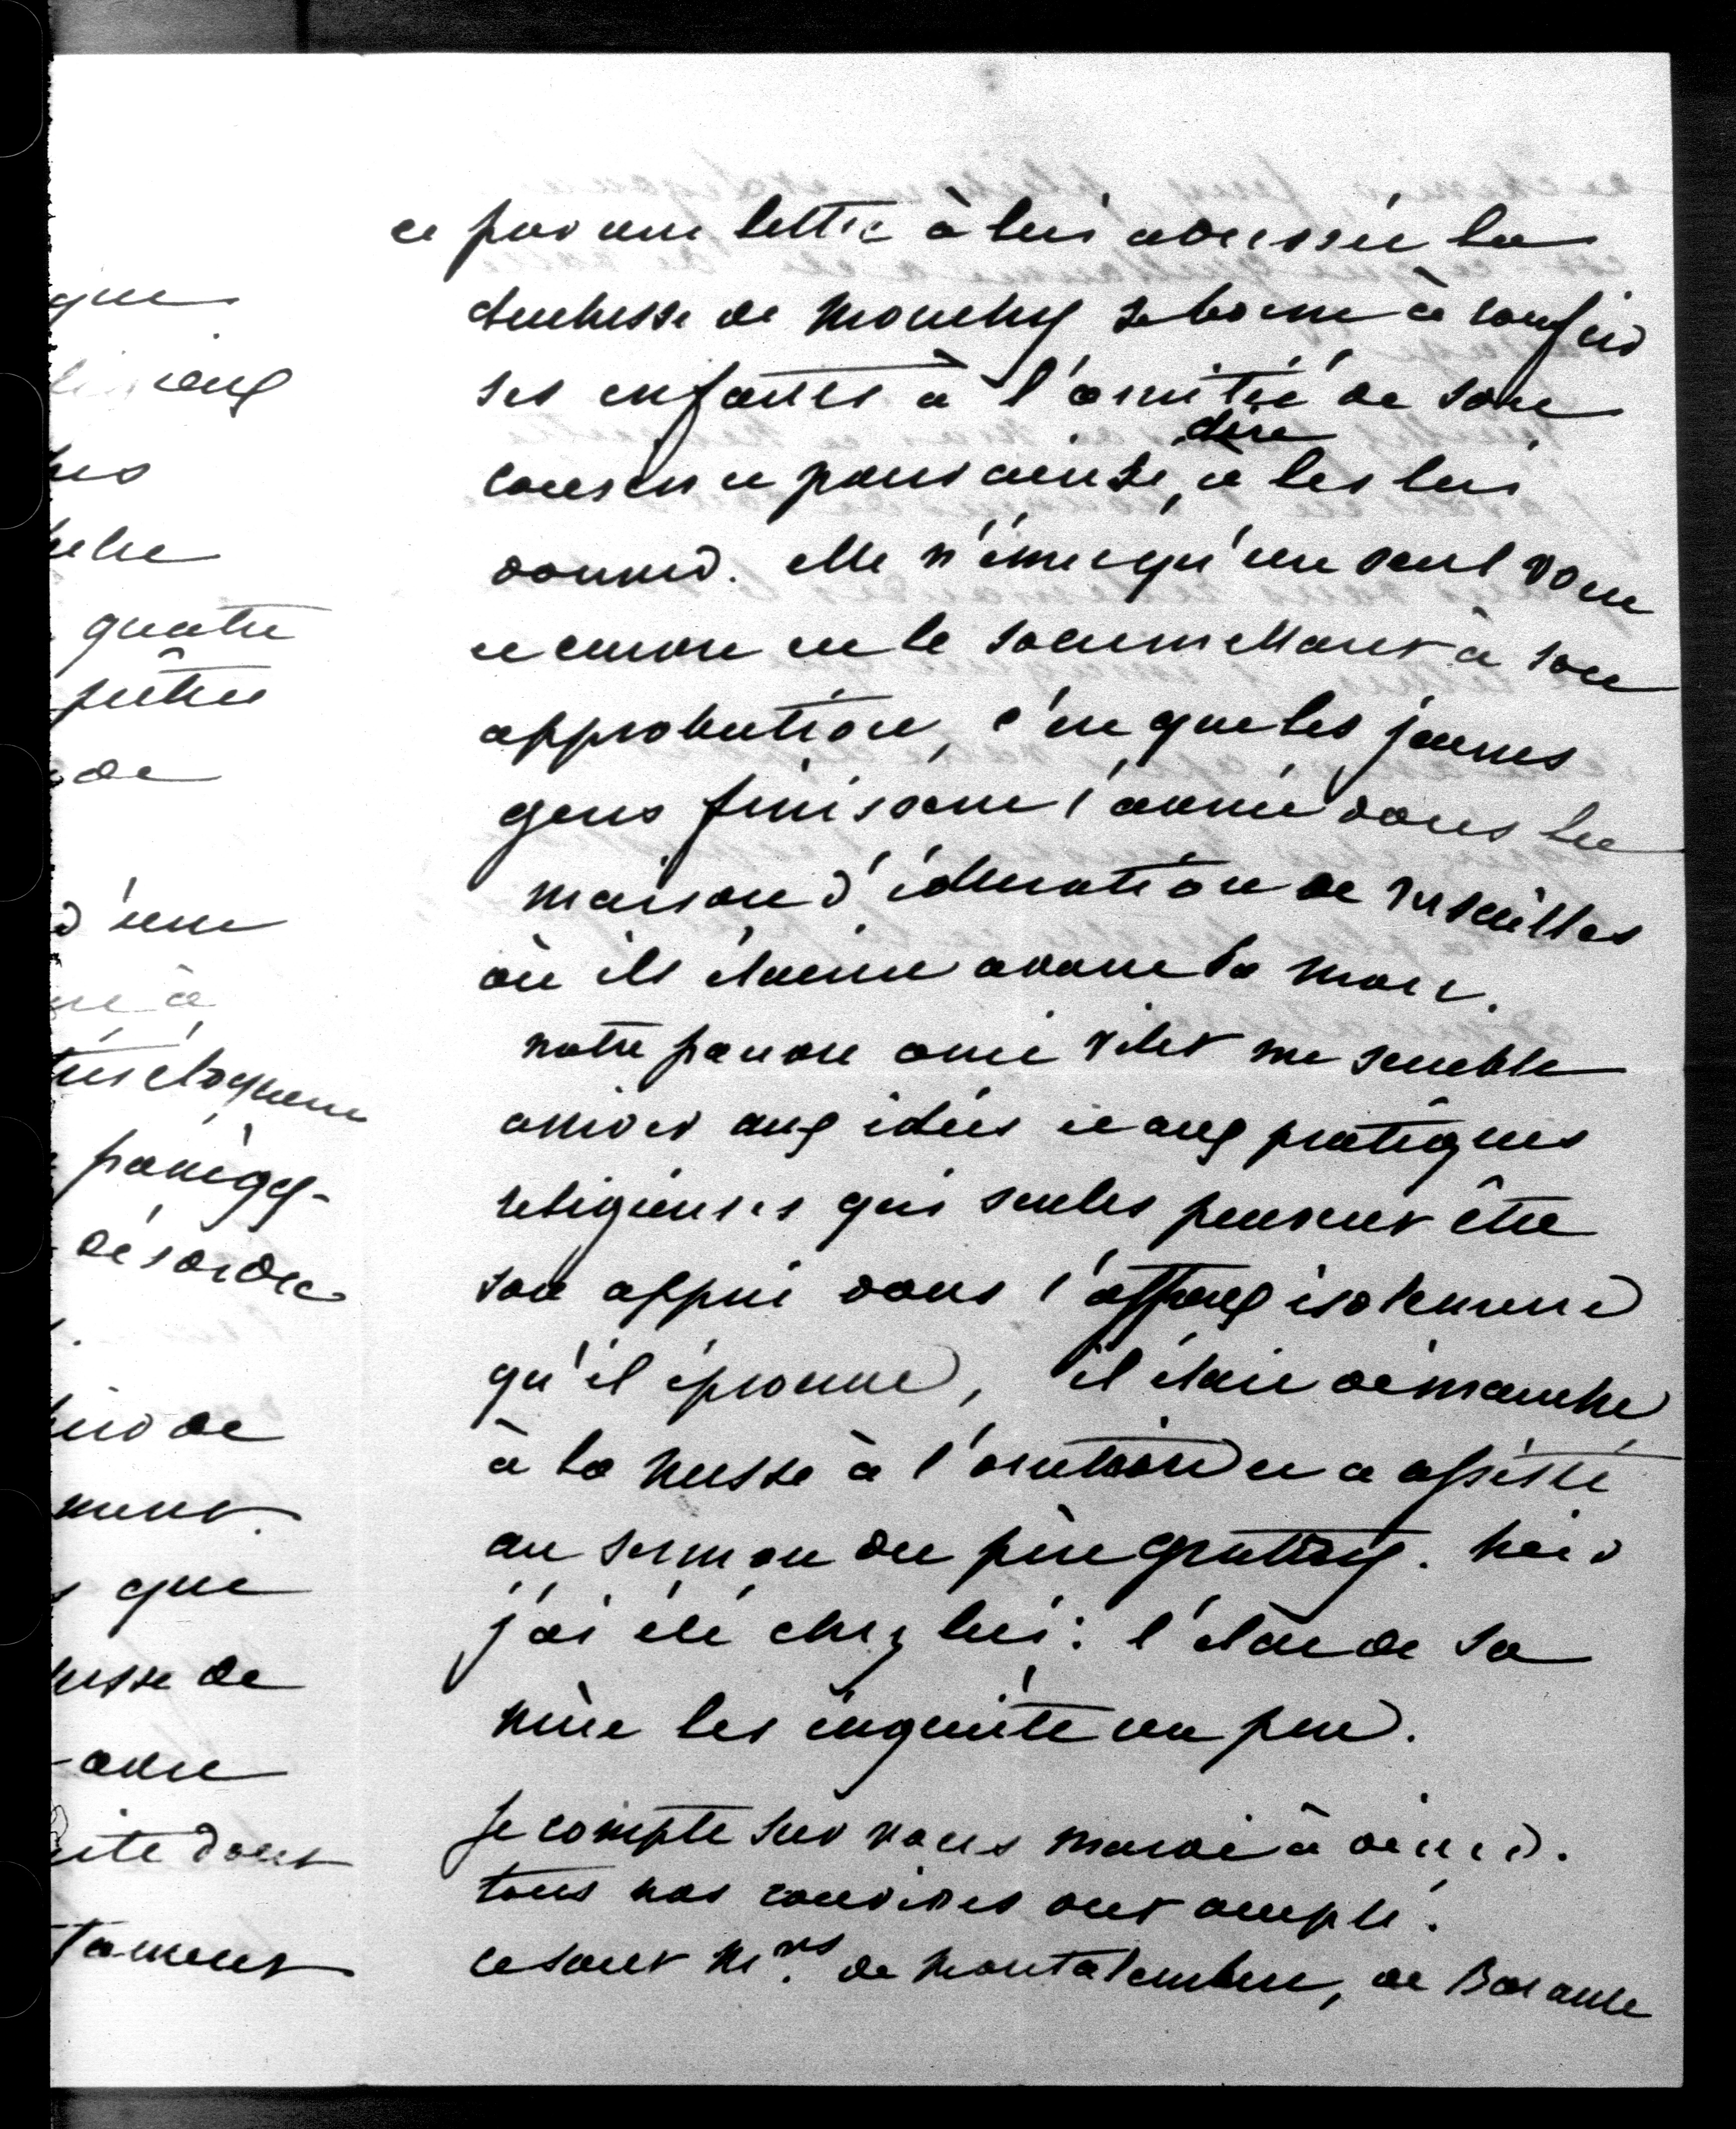 que
ieux
quatre
prêtre
de
d'une
à
très éloquent
panégy-
désordre
de
ment.
que
de
dont
tament
et par une lettre à lui adressée la
duchesse de Mouchy se borne à confier
ses enfants à l'amitié de son
cousin et pour ainsi dire à les lui
donner. elle n'émet qu'un seul vœu
et encore en le soumettant à son
approbation, c'est que les jeunes
gens finissent l'année dans la
maison d'éducation de Versailles
où ils étaient avant sa mort.
notre pauvre ami Vitet me semble
arriver aux idées et aux pratiques
religieuses qui seules peuvent être
son appui dans l'affreux isolement
qu'il éprouve, il était dimanche
à la messe à l'oratoire et a assisté
au sermon du père gratry. hier
j'ai été chez lui : l'état de sa
mère les inquiète un peu.
Je compte sur vous mardi à diner.
tous nos convives ont accepté.
ce sont Mrs. de Montalembert, de Barante